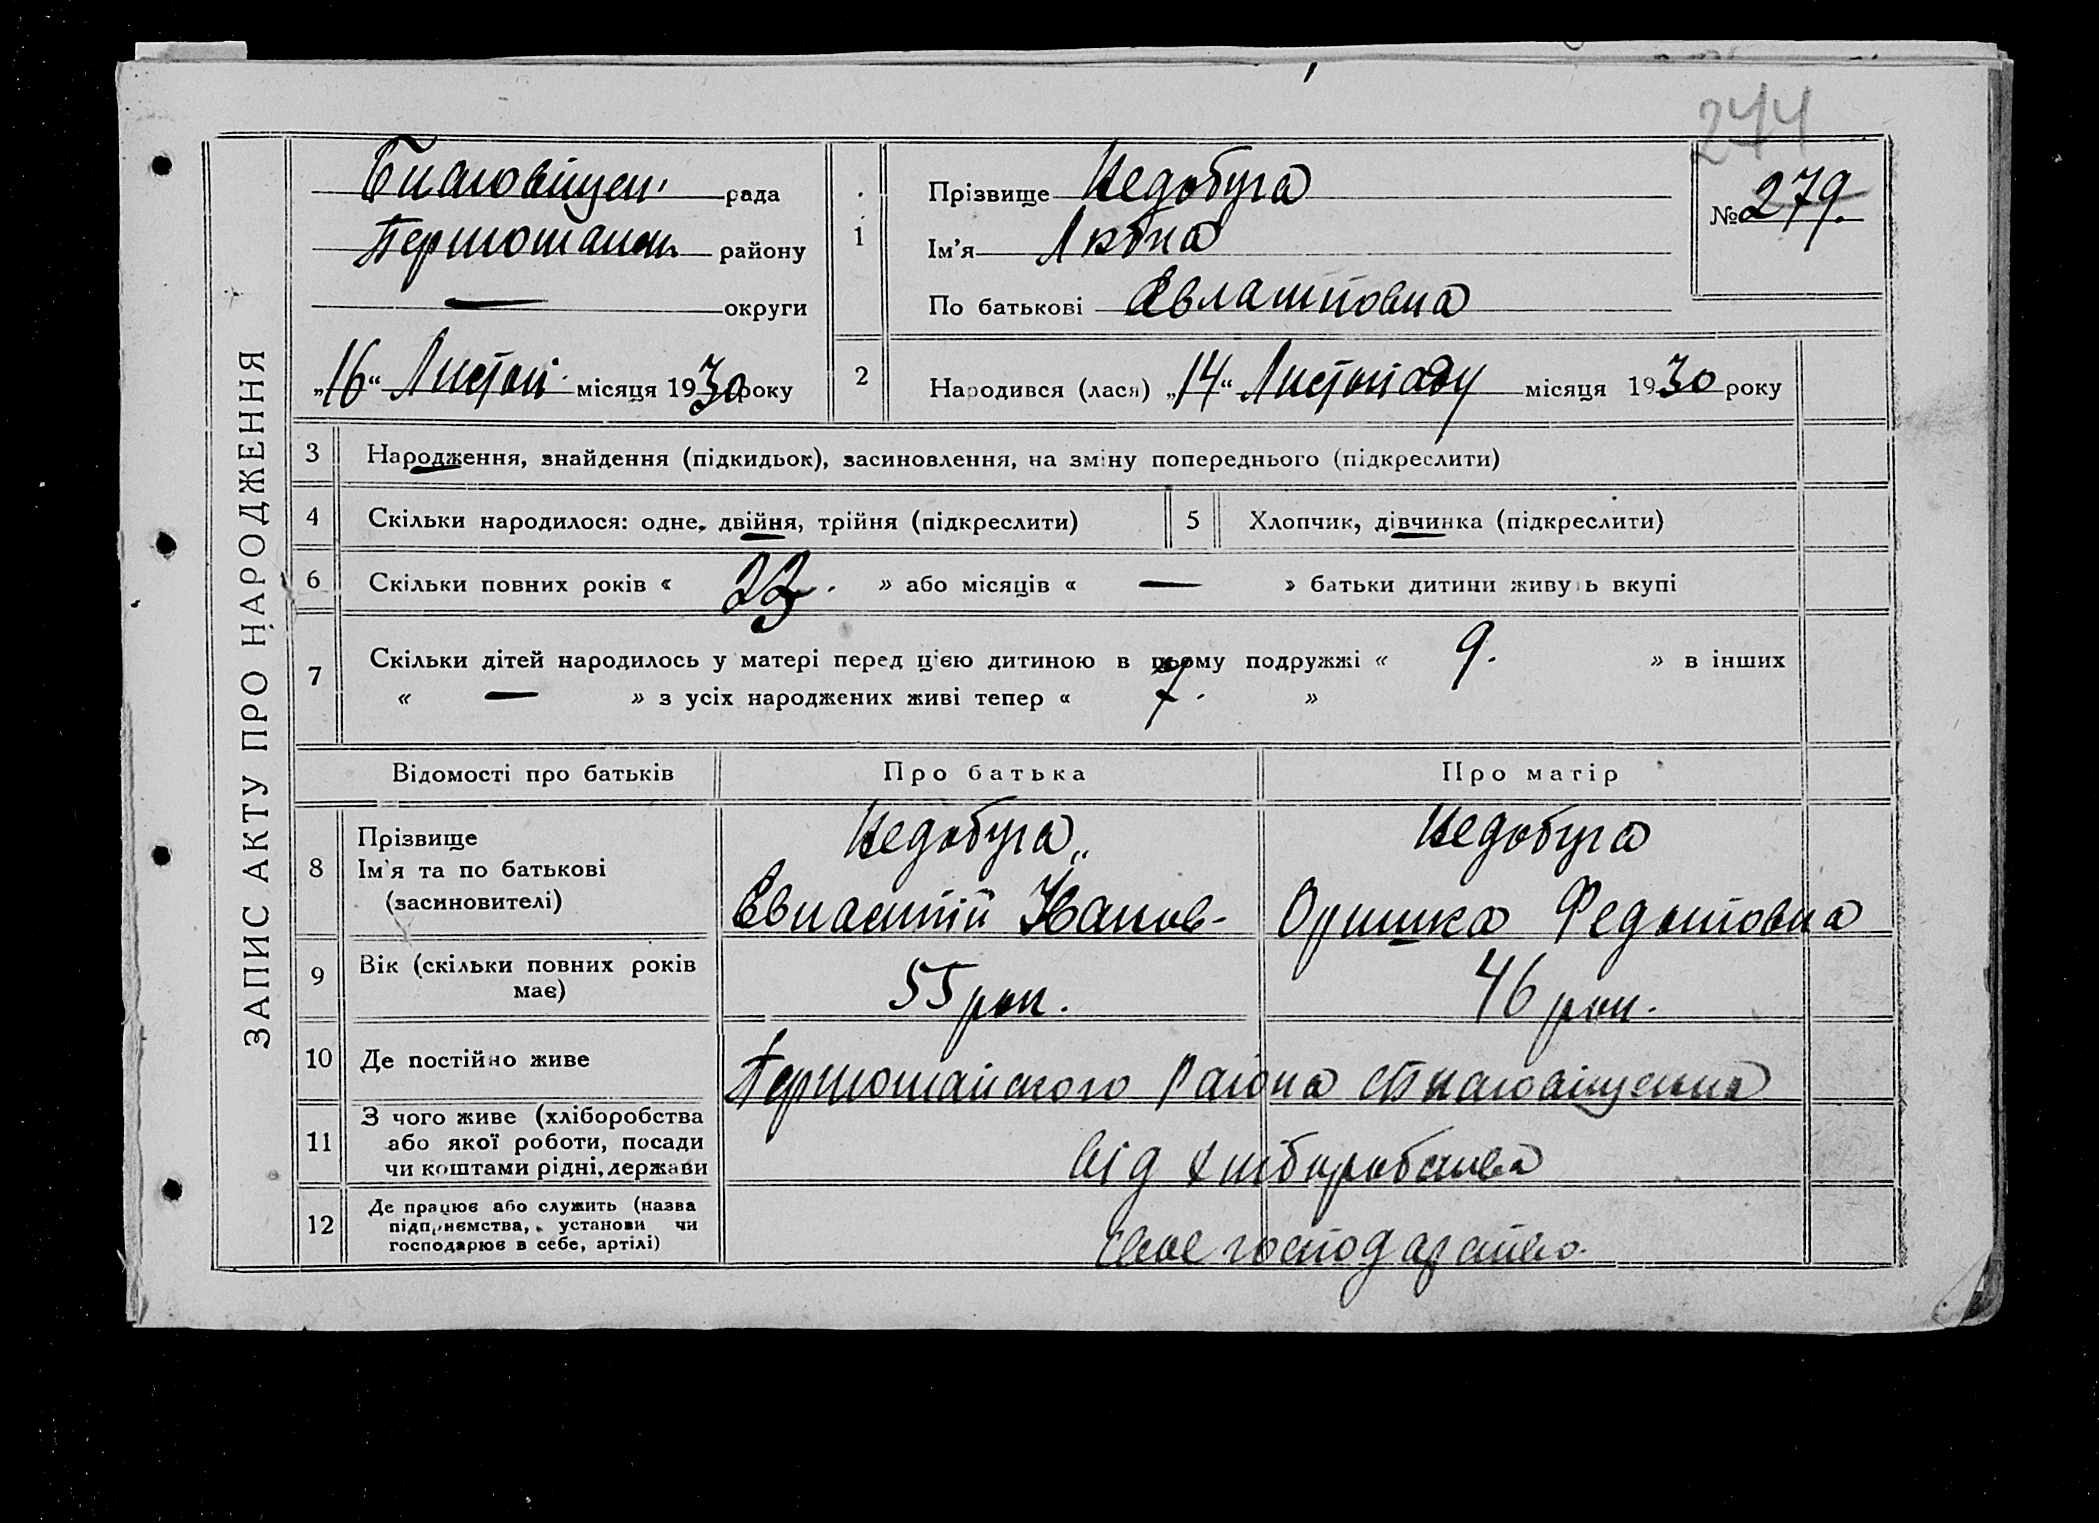 244
ЗАПИС АКТУ ПРО НАРОДЖЕННЯ
Благовіщен. рада
Першотравен. району
— округи
„16“ Листоп. місяця 1930 року
1
Прізвище Недобуга
Ім’я Любка
По батькові Євлашповна
№ 279.
2 Народився (лася) „14“ Листопаду місяця 1930 року
3 Народження, знайдення (підкидьок), засиновлення, на зміну попереднього (підкреслити)
4 Скільки народилося: одне, двійня, трійня (підкреслити)
5 Хлопчик, дівчинка (підкреслити)
6 Скільки повних років « 23. » або місяців « — » батьки дитини живуть вкупі
7 Скільки дітей народилось у матері перед цією дитиною в цьому подружжі « 9. » в інших
« — » з усіх народжених живі тепер « 7. »
Відомості про батьків Про батька Про матір
8 Прізвище
Ім’я та по батькові
(засиновителі)
Недобуга
Івнов-
Недобуга
Оришка Федотовна
9 Вік (скільки повних років
має)
55 рок. 46 рок.
10 Де постійно живе
Района Благовіщенка
11 З чого живе (хліборобства
або якої роботи, посади
чи коштами рідні, держави
від хліборобства
12 Де працює або служить (назва
підприємства, установи чи
господарює в себе, артілі)
своє господарство.